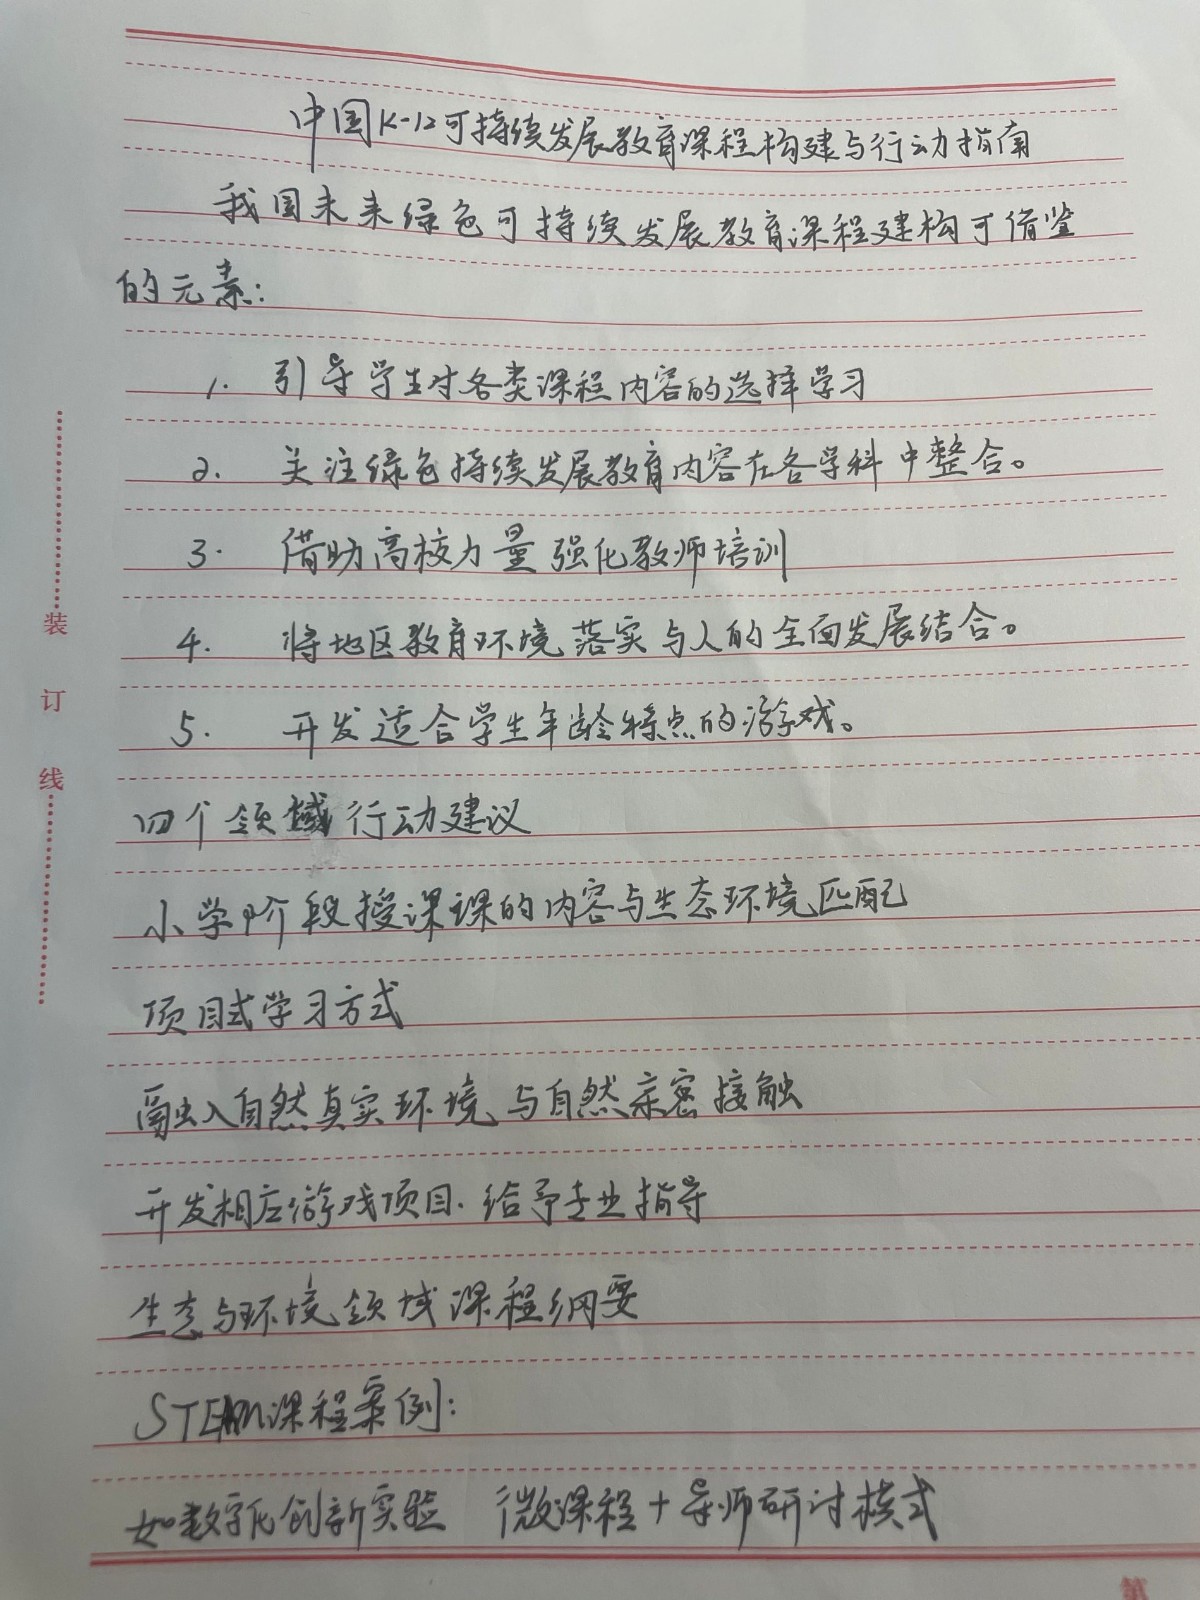 中国K-12可持续发展教育课程构建与行动指南
我国未来绿色可持续发展教育课程建构可借鉴
的元素:
1. 引导学生对各类课程内容的选择学习
2. 关注绿色持续发展教育内容在各学科中整合。
3. 借助高校力量强化教师培训
4. 将地区教育环境落实与人的全面发展结合。
5. 开发适合学生年龄特点的游戏。
四个领域行动建议
小学阶段授课课的内容与生态环境匹配
项目式学习方式
融入自然真实环境与自然亲密接触
开发相应游戏项目.给予专业指导
生态与环境领域课程纲要
STEAM课程案例:
如数字化创新实验 微课程+导师研讨模式
装
订
线
第